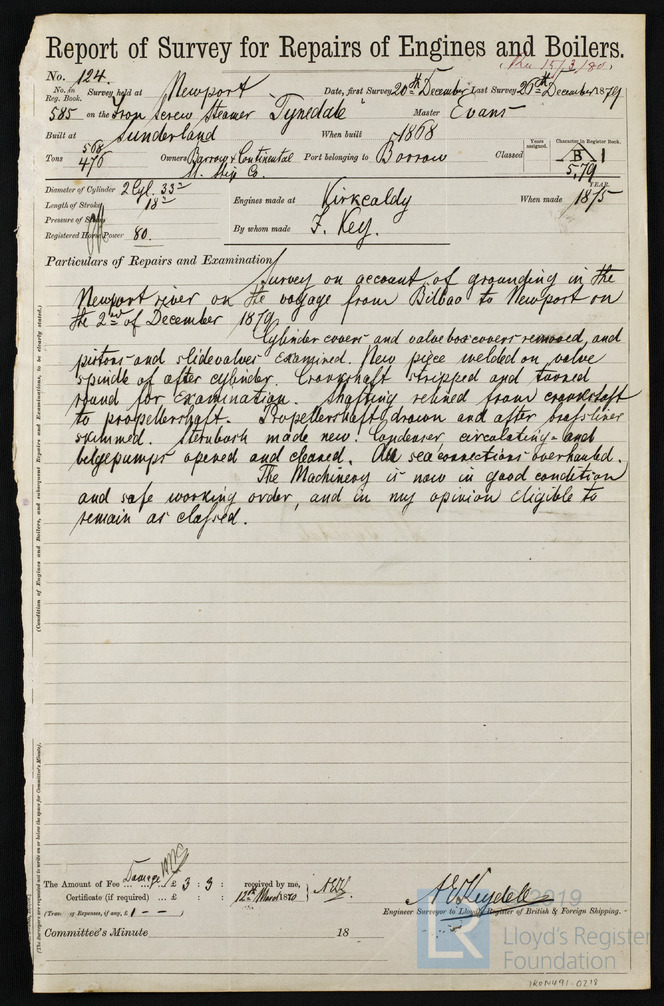 Report of Survey for Repairs of Engines and Boilers.
(Rec 15/3/80)
No. 124.
No. in Reg. Book. Survey held at Newport Date, first Survey 20th December Last Survey 26th December 1879
585 on the Iron Screw Steamer "Tynedale" Master Evans
Built at Sunderland When built 1868
Tons 568 476 Owners Barrow & Continental St. Ship Co. Port belonging to Barrow Classed Years assigned. Character in Register Book. B 1 5,79
Diameter of Cylinder 2 Cyl. 33"
Length of Stroke 18"
Pressure of Steam
Registered Horse Power 80.
Engines made at Kirkcaldy When made YEAR. 1875
By whom made F. Key.
Particulars of Repairs and Examination Survey on account of grounding in the
Newport river on the voyage from Bilbao to Newport on
the 2nd of December 1879
Cylinder covers and valve box covers removed, and
pistons and slidevalves examined. New piece welded on valve
spindle of after cylinder. Crankshaft stripped and turned
round for examination. Shafting relined from crankshaft
to propellershaft. Propellershaft drawn and after brassliner
skimmed. Sternbush made new. Condenser circulating- and
bilgepumps opened and cleaned. All seaconnections overhauled.
The Machinery is now in good condition
and safe working order, and in my opinion eligible to
remain as classed.
(Condition of Engines and Boilers, and subsequent Repairs and Examinations, to be clearly stated.)
(The Surveyors are requested not to write on or below the space for Committee's Minute).
Damage
The Amount of Fee ... £ 3 : 3 : received by me,
Certificate (if required) ... £ : : 12th March 1880
(Travelling Expenses, if any, £ 1 - - )
Engineer Surveyor to Lloyd's Register of British & Foreign Shipping.
Committee's Minute 18
2019
LR
Lloyd's Register
Foundation
IRON491-0218